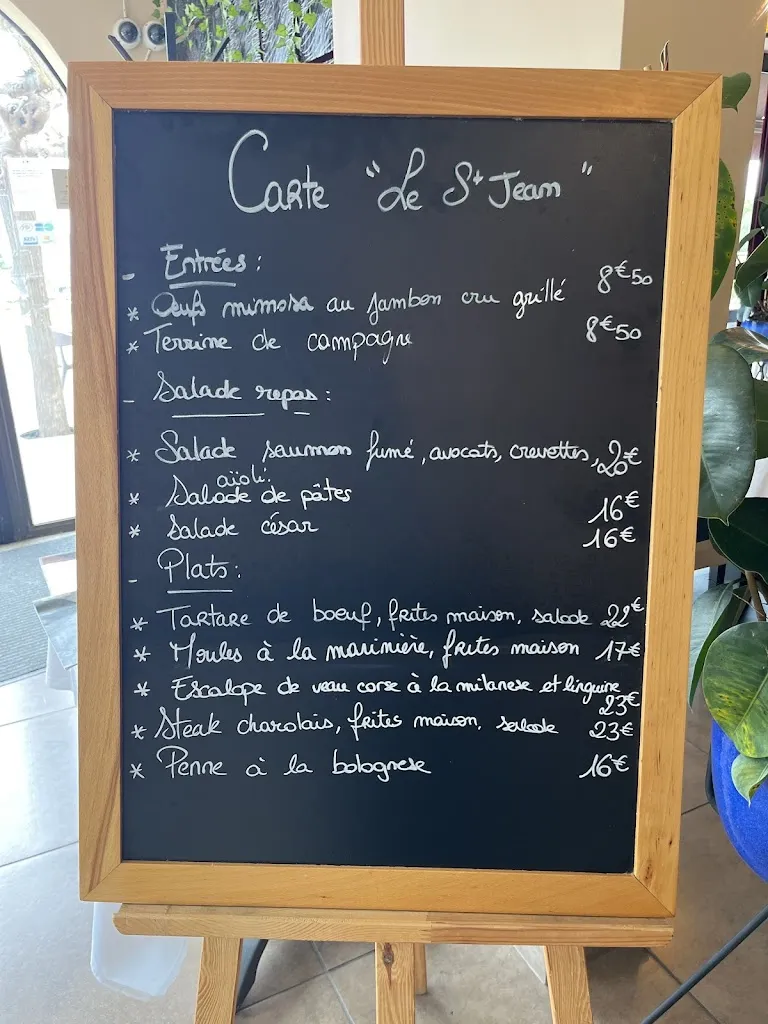 Carte "Le St Jean"
- Entrées :
* Oeufs mimosa au jambon cru grillé 8€50
* Terrine de campagne 8€50
- Salade repas :
* Salade saumon fumé, avocats, crevettes, 20€
aïoli.
* Salade de pâtes 16€
* Salade césar 16€
- Plats :
* Tartare de boeuf, frites maison, salade 22€
* Moules à la marinière, frites maison 17€
* Escalope de veau corse à la milanese et linguine
23€
* Steak charolais, frites maison, salade 23€
* Penne à la bolognese 16€